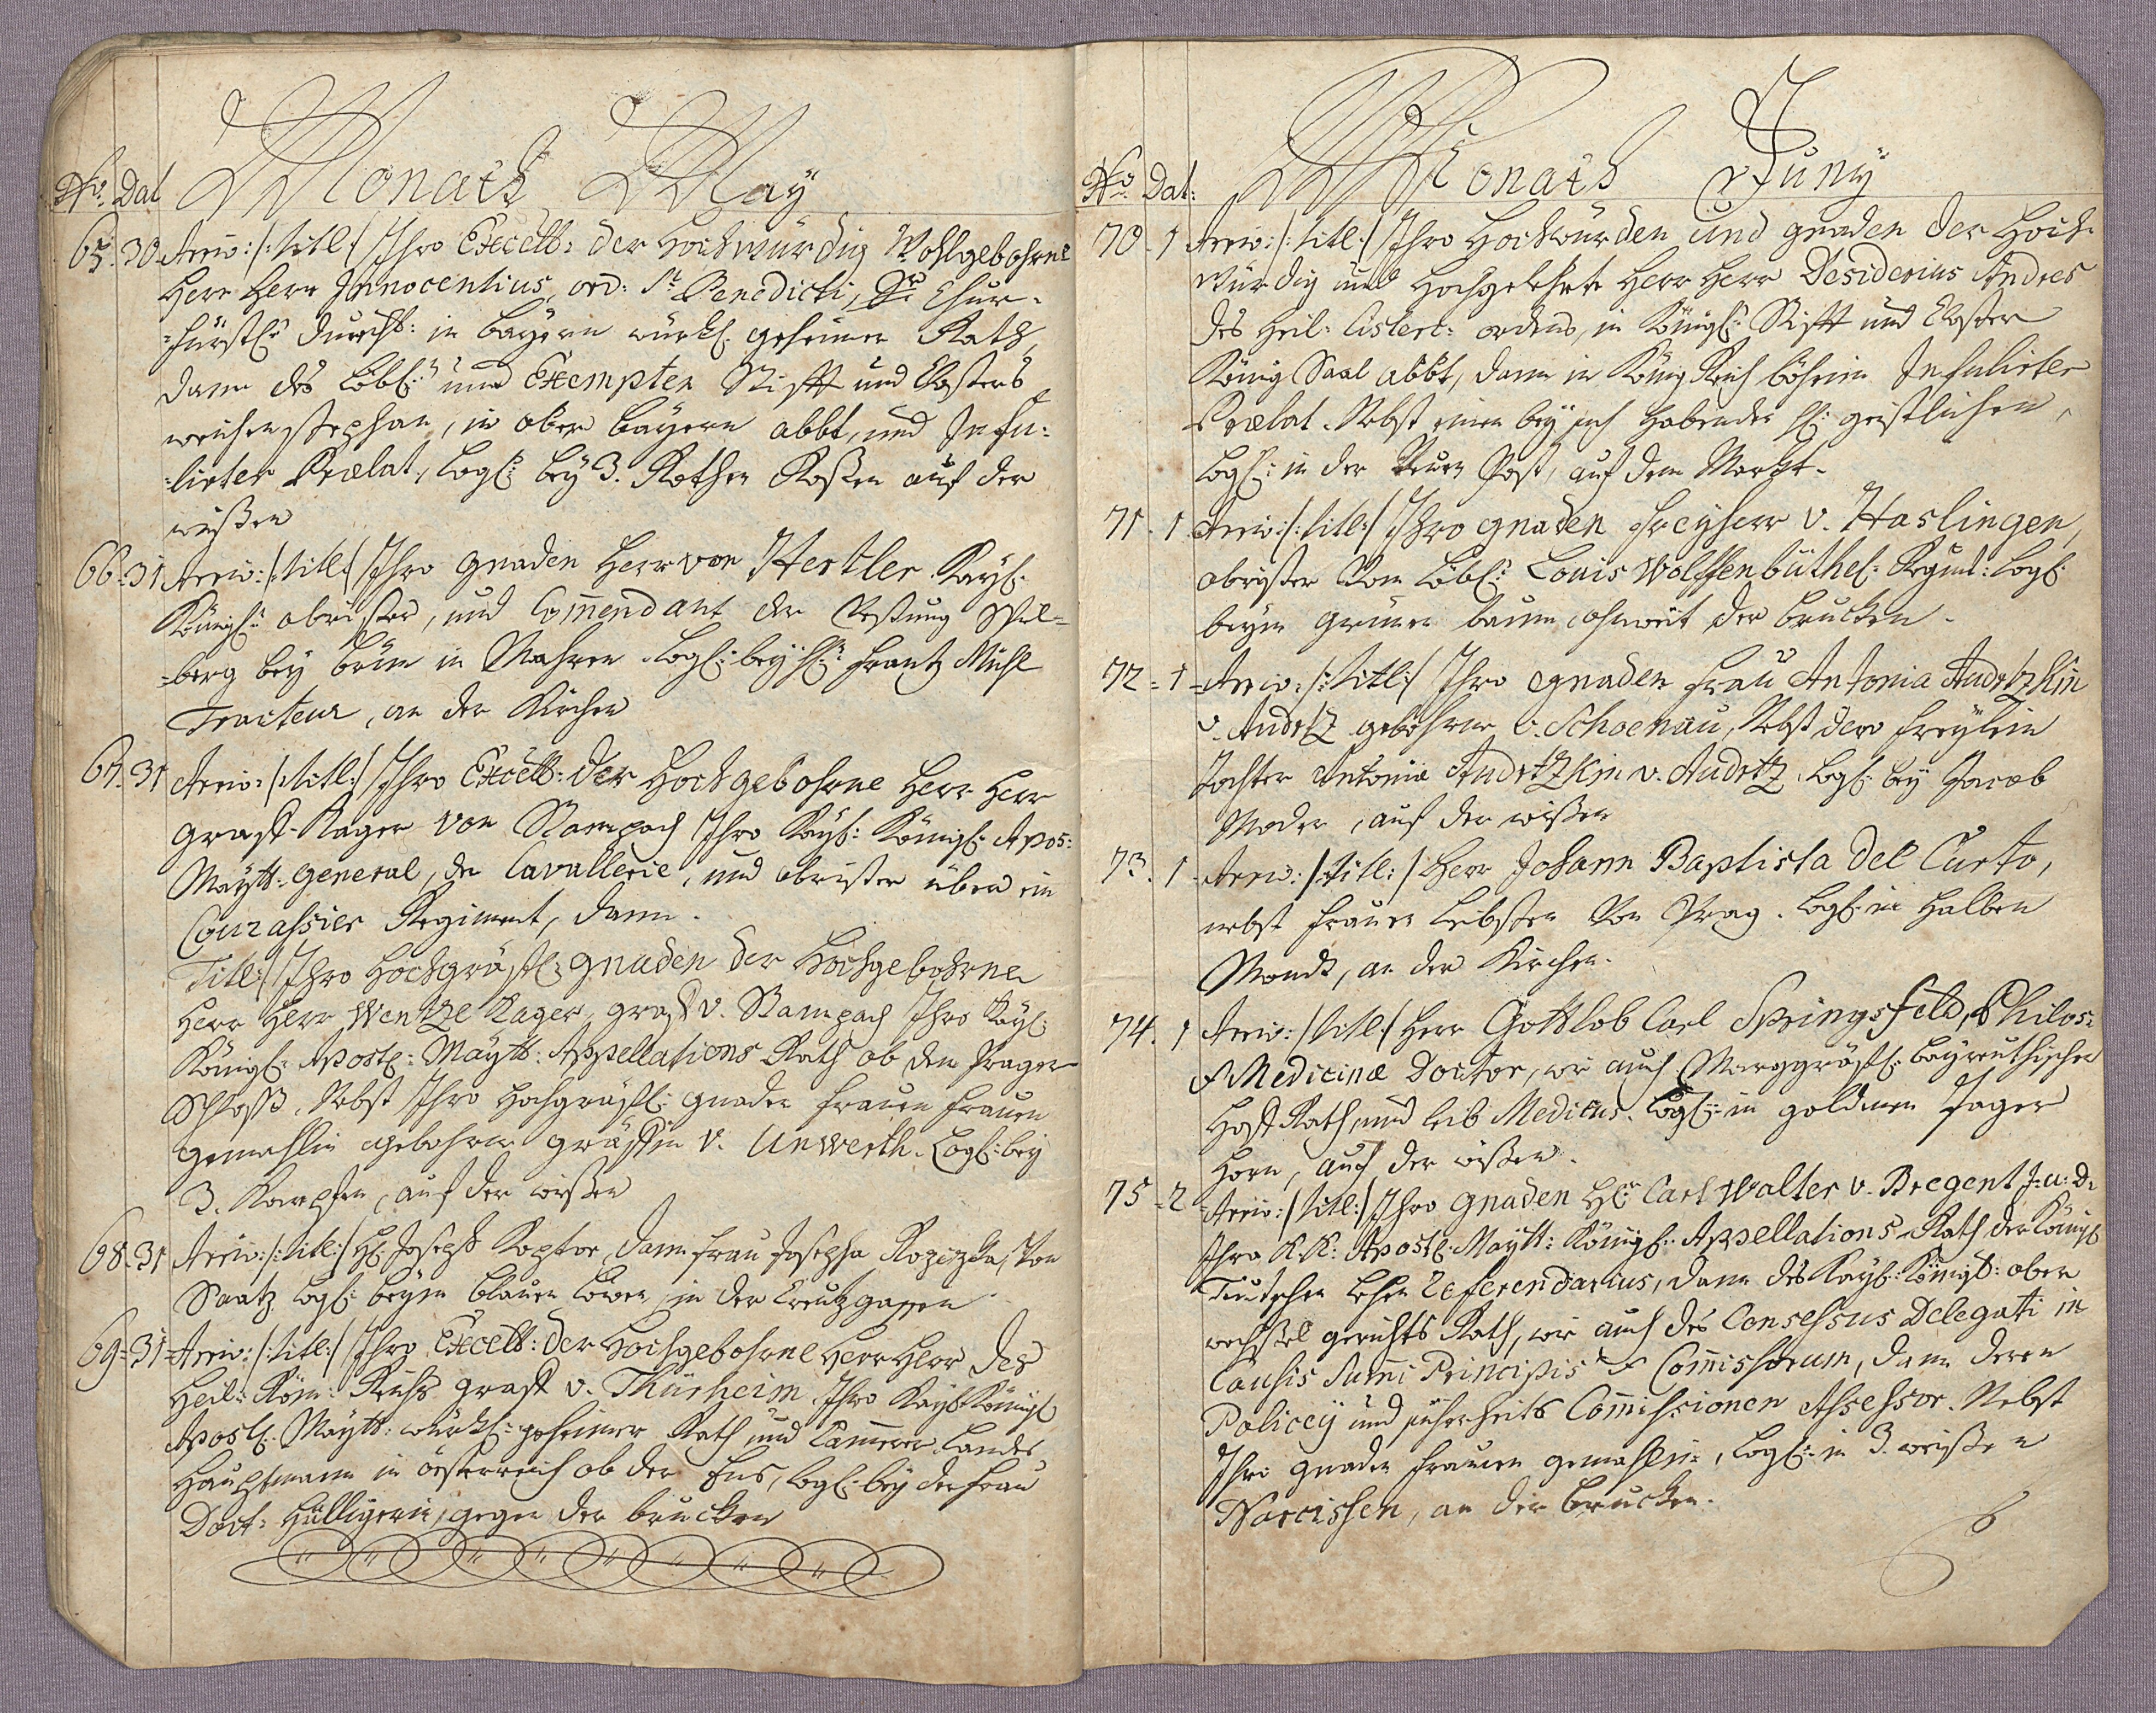 Monath May
No. Dat
65. 30. Arriv: /: titl: / Ihro Excell: der Hochwürdig Wohlgebohrne
Herr Herr Innocentius, ord: St. Benedicti, Sr. Chur-
=fürstl: Durchl: in Bayern würkl. geheimer Rath,
dann des Löbl: und Exempten Stifft und Closters
Weichenstephan, in ober Bayern abbt, und Infu-
=lirter Prælat, Logl: bey 3. Rothen Rosen auf der
wießen
66. 31 Arriv: /: titl: / Ihro Gnaden Herr von Hertler Kayl.
Königl: obrister, und Com̄endant der Vestung Spil-
=berg bey brünn in Mahren Logl: bey H: Frantz Mühl
Traiteur, an der Kirchen
67. 31 Arriv: /: titl: / Ihro Excell: der Hochgebohrne Herr Herr
Graff Kager von Stampach Ihro Kayl: Königl: Apos:
Maytt: General, der Cavallerie, und obrister über ein
Courassier Regiment, dann.
Titl: / Ihro Hochgräfl: Gnaden der Hochgebohrne
Herr Herr Wentzl Kager, graff v. Stampach Ihro Kayl:
Königl: Apostl: Maytt: Appellations Rath ob dem Prager
Schloß, Nebst Ihro Hochgräfl: Gnaden Frauen Frauen
Gemahlin gebohrne gräffin v. Unwerth. Logl: bey
3. Karpfen, auf der wießen
68. 31 Arriv: /: titl: / H: Joseph Koptor, dann Frau Josepha Von
Saatz Logl: beym blauen Löwen, in der Creutzgassen
69. 31 Arriv: /: titl: / Ihro Excell: der Hochgebohrne Herr Herr des
Heil: Röm: Reichs graff v. Thürheim, Ihro Kayl: Königl
Apostl: Maytt: würkl: geheimer Rath und Cam̄erer Landes
Hauptmann in österreich ob der Ens, Logl: bey der Frau
Doct: Hülligerin, gegen der brucken
Monath Juny
No. Dat:
70. 1 Arriv: /: titl: / Ihro Hochwürden und gnaden der Hoch-
würdig und Hochgelehrte Herr Herr Desiderius Andres
des Heil: Cisterc: ordens, in Königl: Stifft und Closter
König Saal abbt, dann in König Reich böheim Infulirter
Prælat. Nebst einen bey sich habenden H: geistlichen,
Logl: in der Neuen Post, auf dem Markt.
71. 1 Arriv: /: titl: / Ihro gnaden Freyherr v. Haslingen,
obrister Vom Löbl: Louis Wolffenbüthel: Regimt: Logl:
beym grünen baum, ohnweit der brucken.
72. 1 Arriv: /: titl: / Ihro gnaden Frau Antonia Audrtzkin
v. Audrtz gebohrne v. Schoenau, Nebst dero Freylein
Tochter Antonia Audrtzkin v. Audrtz, Logl: bey Jacob
Moder, auf der wießen
73. 1 Arriv: /: titl: / Herr Johann Baptista Del Curto,
nebst Frauen Liebsten Von Prag. Logl: in Halben
Mondt, an der Kirchen.
74. 1 Arriv: / titl: / Herr Gottlob Carl Springsfeld, Philos:
& Medicinæ Doctor, wie auch Marggräfl: bayreuthischer
Hoff Rath, und leib Medicus. Logl: in goldenen Jager
Horn, auf der wießen.
75. 2 Arriv: / titl: / Ihro gnaden H: Carl Walter v. Bregent J: u: D:
Ihro K. K: Apostl: Maytt: Königl: Appellations Rath der Königl
Teutschen Lehen Referendarius, dann des Kayl: Königl: ober
wechsel gerichts Rath, wie auch des Consessus Delegati in
Causis Sum̄i Principis & Com̄issorum, dann deren
Policey und sicherheits Com̄issionen Assessor. Nebst
Ihro gnaden Frauen gemahlin, Logl: in 3. weißen
Narcissen, an der brucken.